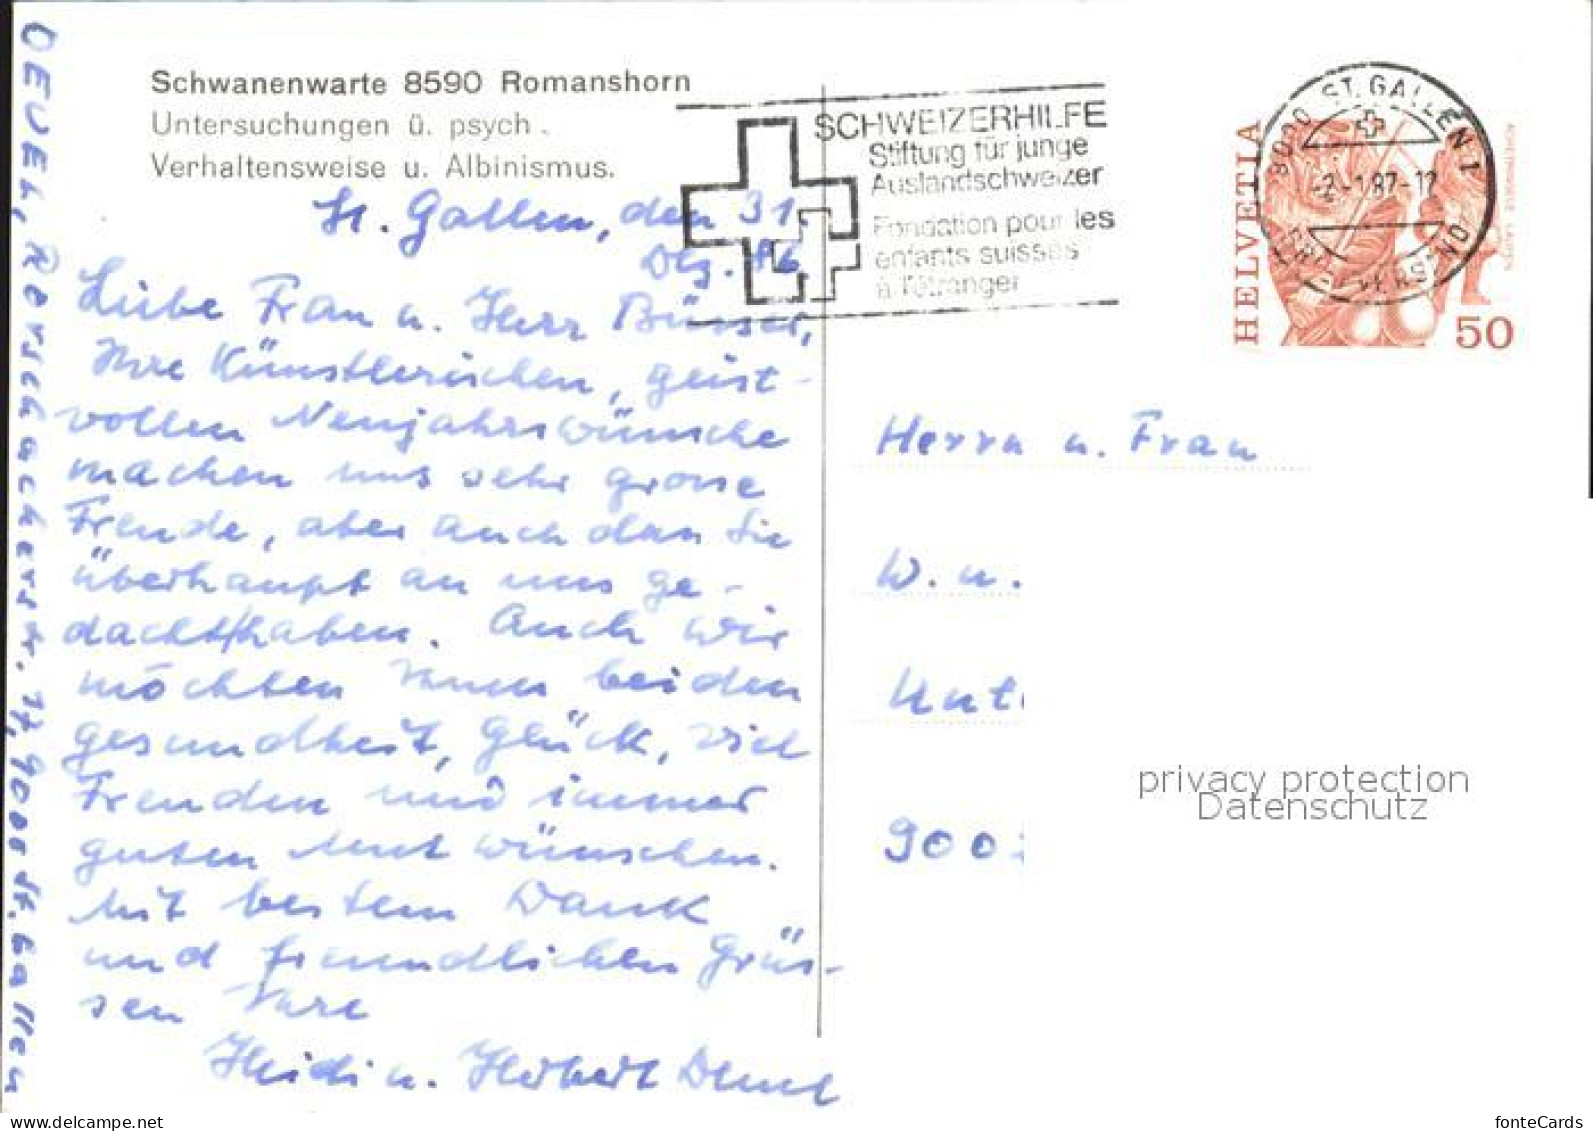 Schwanenwarte 8590 Romanshorn
Untersuchungen ü. psych.
Verhaltensweise u. Albinismus.
St. Gallen, den 31.
Dez. 86
Liebe Frau u. Herr
Ihre Künstlerischen, geist-
vollen Neujahrswünsche
machen uns sehr grosse
Freude, aber auch dass Sie
überhaupt an uns ge-
dacht haben. Auch wir
möchten Ihnen beiden
gesundheit, Glück, viel
Freuden und immer
guten Mut wünschen.
Mit bestem Dank
und freundlichen Grüs-
sen Ihre
Heidi u. Herbert Deuel
DEUEL, Rorschacherstr. 17, 9000 St. Gallen
SCHWEIZERHILFE
Stiftung für junge
Auslandschweizer
Fondation pour les
enfants suisses
à l'étranger
9000 ST. GALLEN 1
-2.-1.87-17
HELVETIA
50
Herrn u. Frau
W. u.
900
privacy protection
Datenschutz
www.delcampe.net
fonteCards